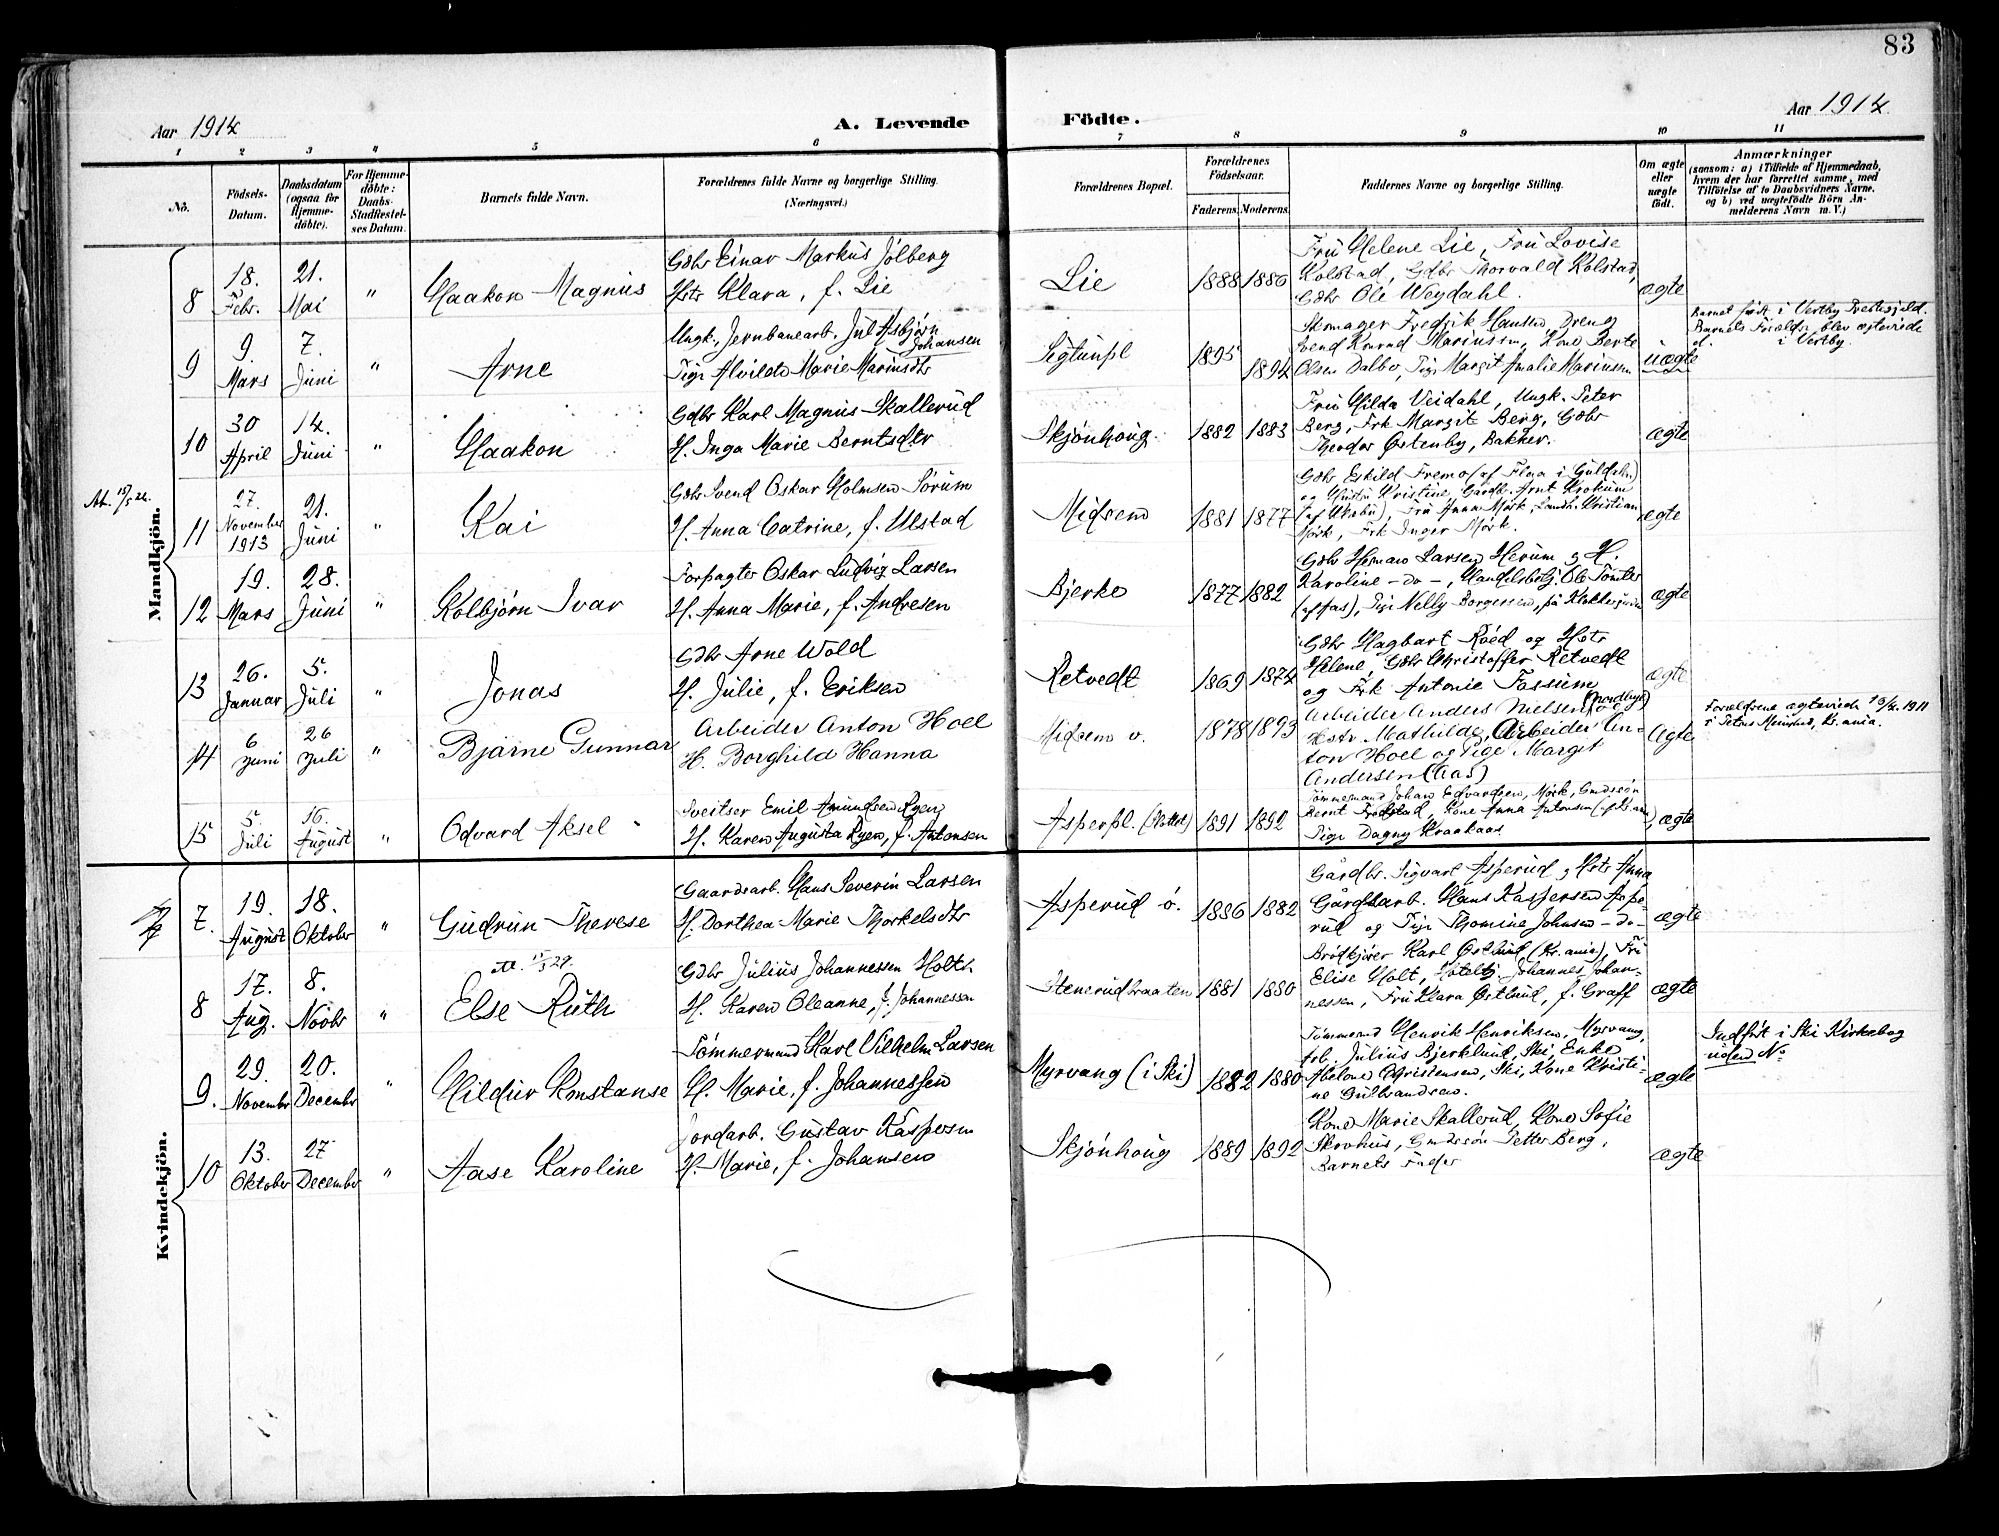 83
Aar 1914
A. Levende
Födte.
Aar 1914
1 2 3 4 5 6 7 8 9 10 11
No.
Födsels-
Datum.
Daabsdatum
(ogsaa for
Hjemme-
döbte).
For Hjemme-
döbte:
Daabs-
Stadfæstel-
ses Datum.
Barnets fulde Navn.
Forældrenes fulde Navne og borgerlige Stilling.
(Næringsvei.)
Forældrenes Bopæl.
Forældrenes
Födselsaar.
Faderens. Moderens.
Faddernes Navne og borgerlige Stilling.
Om ægte
eller
uægte
födt.
Anmærkninger
(saasom: a) i Tilfælde af Hjemmedaab,
hvem der har forrettet samme, med
Tilföielse af to Daabsvidners Navne,
og b) ved uægtefödte Börn An-
melderens Navn m. V.)
Mandkjön.
8
18.
Febr.
21.
Mai
"
Haakon Magnus
Gdbr Einar Markus Jölberg
Hstr Klara, f. Lie
Lie
1888 1886
Fru Helene Lie, Fru Lovise
Kolstad, Gdbr Thorvald Kolstad,
Gdbr Ole Weydahl.
ægte
9
9.
Mars
7.
Juni
"
Arne
Ungk., Jernbanearb. Jul Asbjørn
Johansen
Pige Alvilde Marie Marinsdtr
Sigtunpl
1895
1894
Skomager Fredrik Hansen, Dreng
Svend Konrad Marinssen, Kone Berte
Olsen Dalbo, Pige Margit Amalie Marinssen
uægte
Barnet født i Vestby Prestegjeld.
Barnets Forældre blev ægteviede
i Vestby.
10
30
April
14.
Juni
"
Haakon
Gdbr Karl Magnus Skallerud
H. Inga Marie Berntsdtr
Skjönhoug.
1882 1883
Fru Hilda Veidahl, Ungk. Peter
Berg, Frk Margit Berg, Gdbr
Theodor Østenby, Bakker.
ægte
At. 15/5 26.
11
27.
November
1913
21.
Juni
"
Kai
Gdbr Svend Oskar Holmsen Sörum
H. Anna Catrine, f. Ulstad
Midsem
1881 1877
Gdbr Eskild Fremo (af Flaa i Guldalen)
og Kristine, Gardb. Arnt Krokum
Fru Anna Mörk, Landh. Kristian
Mörk, Frk Inger Mörk.
ægte
12
19.
Mars
28.
Juni
"
Kolbjörn Ivar
Forpagter Oskar Ludvig Larsen
H. Anna Marie, f. Andresen
Bjerke
1877 1882
Gdbr Herman Larsen Herum og H.
Karoline - do -, Handelsbetj. Ole Tomter
(af Aas), Pige Nelly Borgersen, på Klokkergaarden
ægte
13
26.
Januar
5.
Juli
"
Jonas
Gdbr Arne Wold
H. Julie, f. Eriksen
Retvedt
1869 1874
Gdbr Hagbart Röed og Hstr
Helene, Gdbr Christoffer Retvedt
og Frk Antonie Fossum
ægte
14
6
Juni
26
Juli
"
Bjarne Gunnar
Arbeider Anton Hoel
H. Borghild Hanna
Midsem v.
1878 1893
Arbeider Anders Nielsen (Nordbyst) og
Hstr. Mathilde, Arbeider An-
ton Hoel og Pige Margit
Andersen (Aas)
ægte
Forældrene ægteviede 1911
i Petrus Menighed, Kr.ania.
15
5.
Juli
16.
August
"
Odvard Aksel
Sveitser Emil Amundsen Ryen
H. Karen Augusta Ryen, f. Antonsen
Asperpl.
1891 1892
Tømmermand Johan Edvardsen, Mörk, Gmdssön
Bernt Fredstad, Kone Anna Antonsen
Pige Dagny Kraakaas
ægte
Kvindekjön.
7.
19.
August
18.
Oktober
"
Gudrun Therese
Gaardsarb. Hans Severin Larsen
H. Dorthea Marie Thorkelsdtr
Asperud ö.
1886 1882
Gårdbr. Sigvart Asperud og Hstr Anna
Gårdarb. Hans Kaspersen Aspe-
rud og Pige Thomine Johnsen - do -
ægte
8
17.
Aug.
8.
Novbr
"
att. 29.
Else Ruth
Gdbr Julius Johannessen Holth
H. Karen Oleanne, f. Johannessen
Stenerudbraaten
1881 1880
Brödkjörer Karl Østlund, (Kr.ania), Fru
Elise Holt, Hotelbtj. Johannes Johan-
nessen, Fru Klara Østlund, f. Graff
ægte
9.
29.
Novembr
20.
Decembr
"
Hildur Konstanse
Tömmermand Karl Vilhelm Larsen
H. Marie, f. Johannessen
Myrvang (i Ski)
1882 1880
Tömmermd Henrik Henriksen, Myrvang,
Arb. Julius Bjerklund, Ski, Enke
Abelone Christensen, Ski, Kone Kristi-
ne Gulbrandsen.
ægte
Indfört i Ski Kirkebog
uden No
10
13.
Oktober
27
December
"
Aase Karoline
Jordarb. Gustav Kaspersen
H. Marie, f. Johansen
Skjönhoug
1889 1892
Kone Marie Skallerud, Kone Sofie
Skovhus, Gmdssön Petter Berg,
Barnets Fader
ægte